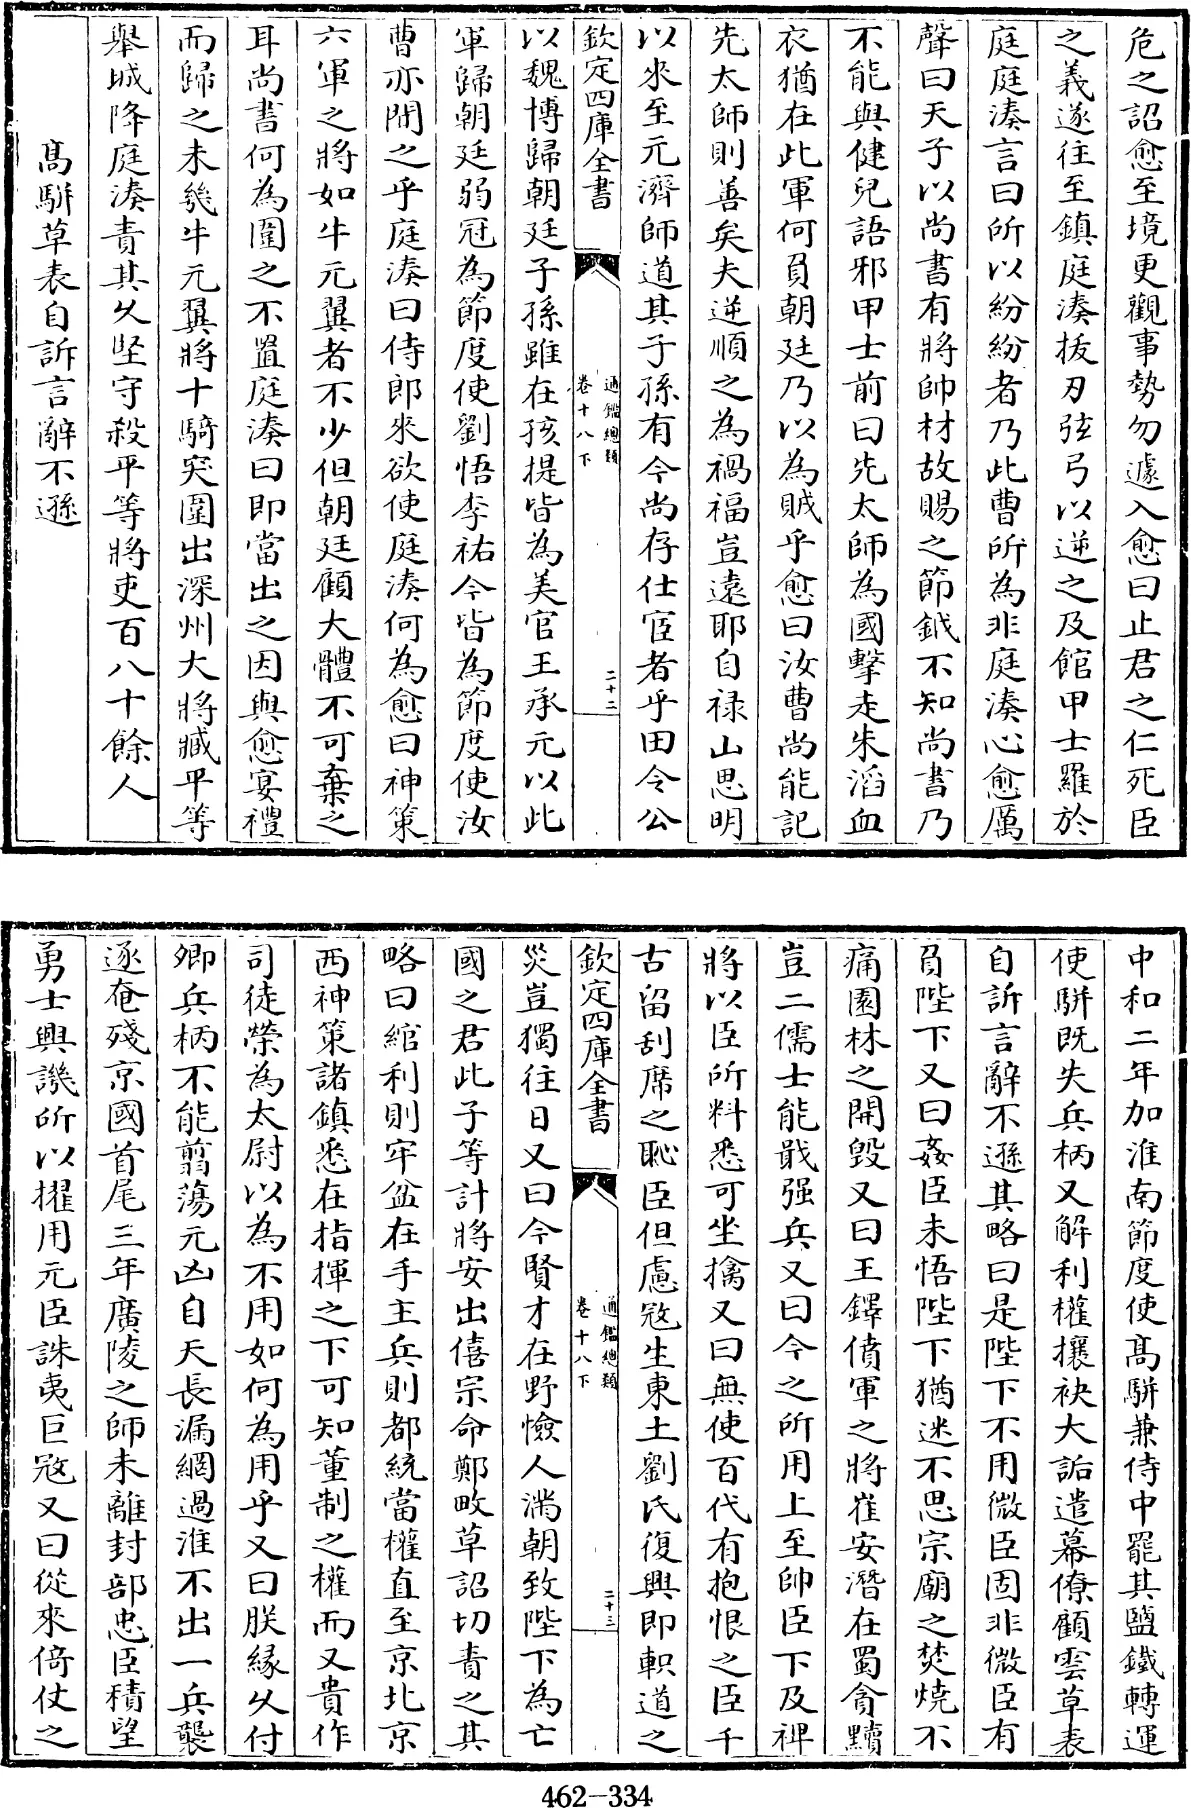 危之詔愈至境更觀事勢勿遽入愈曰止君之仁死臣
之義遂往至鎮庭湊拔刃弦弓以逆之及館甲士羅於
庭庭湊言曰所以紛紛者乃此曹所為非庭湊心愈厲
聲曰天子以尚書有將帥材故賜之節鉞不知尚書乃
不能與健兒語邪甲士前曰先太師為國擊走朱滔血
衣猶在此軍何負朝廷乃以為賊乎愈曰汝曹尚能記
先太師則善矣夫逆順之為禍福豈遠耶自禄山思明
以來至元濟師道其子孫有今尚存仕宦者乎田令公
欽定四庫全書
通鑑總類
卷十八下
二十二
以魏博歸朝廷子孫雖在孩提皆為美官王承元以此
軍歸朝廷弱冠為節度使劉悟李祐今皆為節度使汝
曹亦聞之乎庭湊曰侍郎來欲使庭湊何為愈曰神策
六軍之將如牛元翼者不少但朝廷顧大體不可棄之
耳尚書何為圍之不置庭湊曰即當出之因與愈宴禮
而歸之未幾牛元翼將十騎突圍出深州大將臧平等
舉城降庭湊責其久堅守殺平等將吏百八十餘人
髙駢草表自訴言辭不遜
中和二年加淮南節度使髙駢兼侍中罷其鹽鐵轉運
使駢既失兵柄又解利權攘袂大詬遣幕僚顧雲草表
自訴言辭不遜其略曰是陛下不用微臣固非微臣有
負陛下又曰姦臣未悟陛下猶迷不思宗廟之焚燒不
痛園林之開毀又曰王鐸僨軍之將崔安潛在蜀貪黷
豈二儒士能戢强兵又曰今之所用上至帥臣下及裨
將以臣所料悉可坐擒又曰無使百代有抱恨之臣千
古留刮席之恥臣但慮寇生東土劉氏復興即軹道之
欽定四庫全書
通鑑總類
卷十八下
二十三
災豈獨往日又曰今賢才在野憸人滿朝致陛下為亡
國之君此子等計將安出僖宗命鄭畋草詔切責之其
略曰綰利則牢盆在手主兵則都統當權直至京北京
西神策諸鎮悉在指揮之下可知董制之權而又貴作
司徒榮為太尉以為不用如何為用乎又曰朕緣久付
卿兵柄不能翦蕩元凶自天長漏網過淮不出一兵襲
逐奄殘京國首尾三年廣陵之師未離封部忠臣積望
勇士興譏所以擢用元臣誅夷巨寇又曰從來倚仗之
462-334